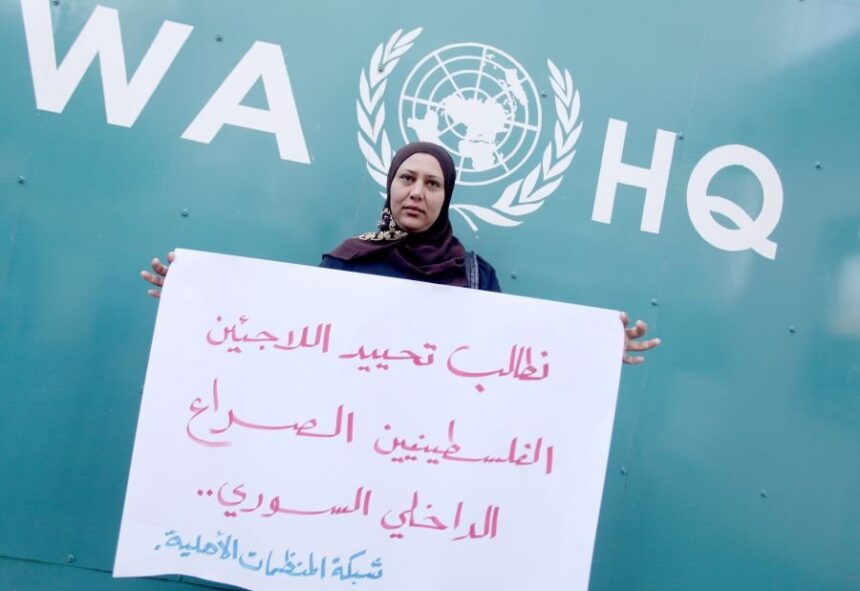 WA HQ
نطالب تحييد اللاجئين
الفلسطينيين الصراع
الداخلي السوري..
شبكة المنظمات الأهلية.